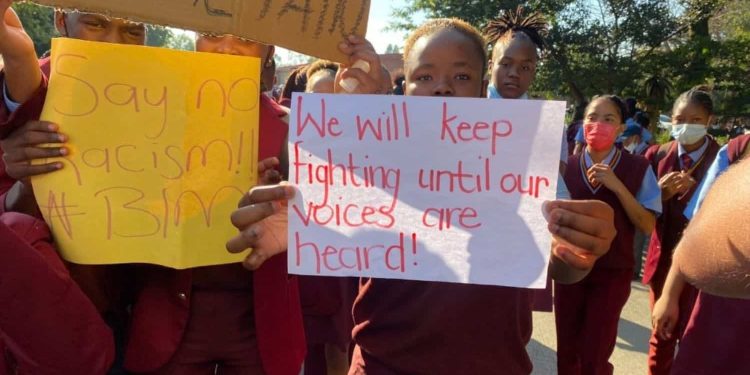 Say no
Racism!!
#Blm
We will keep
fighting until our
voices are
heard!